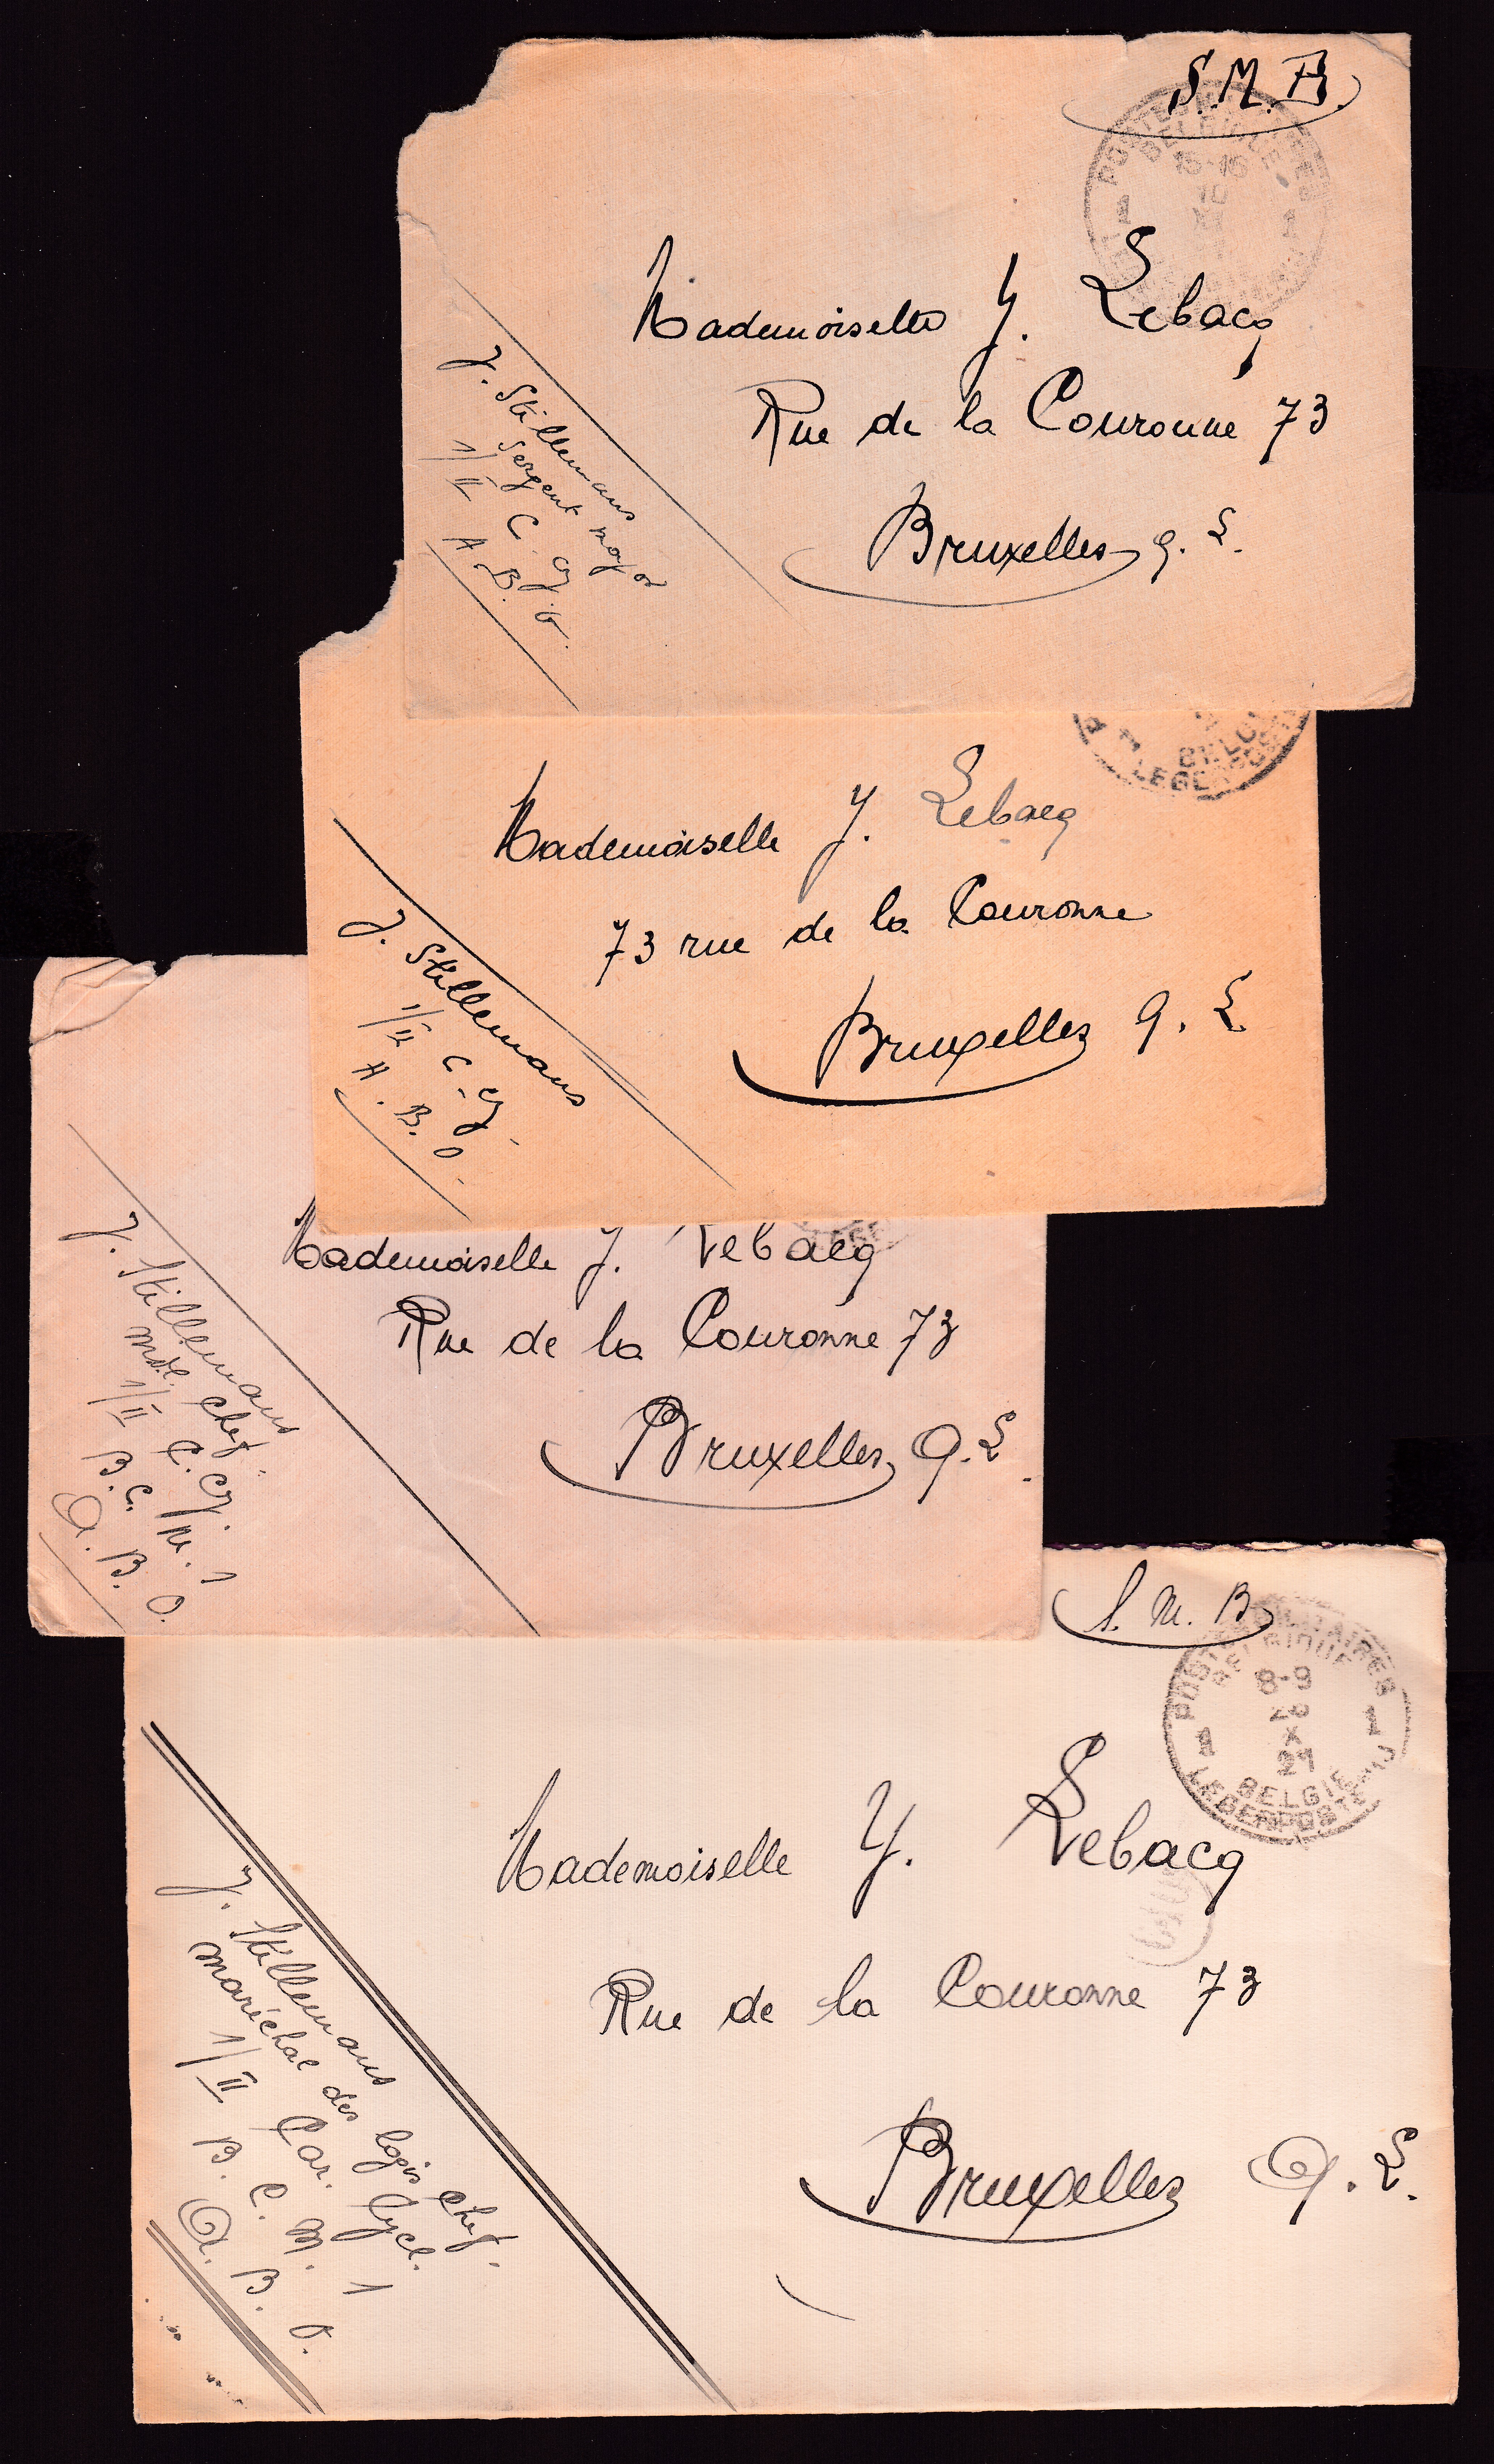 S.M.B.
POSTES MILITAIRES
BELGIQUE
15-16
10
1 1
Mademoiselle Y. Lebacq
Rue de la Couronne 73
Bruxelles Q. L.
J. Stillemans
Sergent major
1/II C. Cy.
A. B. O.
1
BELGIE
LEGERPOST
Mademoiselle Y. Lebacq
73 rue de la Couronne
Bruxelles Q. L
J. Stillemans
1/II C. Cy.
A. B. O.
Mademoiselle Y. Lebacq
Rue de la Couronne 73
Bruxelles Q. L.
J. Stillemans
mdl. chef.
1/II C. Cy.
B. C. M. 1
A. B. O.
S. M. B
POSTES MILITAIRES
BELGIQUE
8-9
X
1 1
BELGIE
LEGERPOSTERIJ
Mademoiselle Y. Lebacq
Rue de la Couronne 73
Bruxelles Q. L.
J. Stillemans
maréchal des logis chef.
1/II Car. Cycl.
B. C. M. 1
A. B. O.